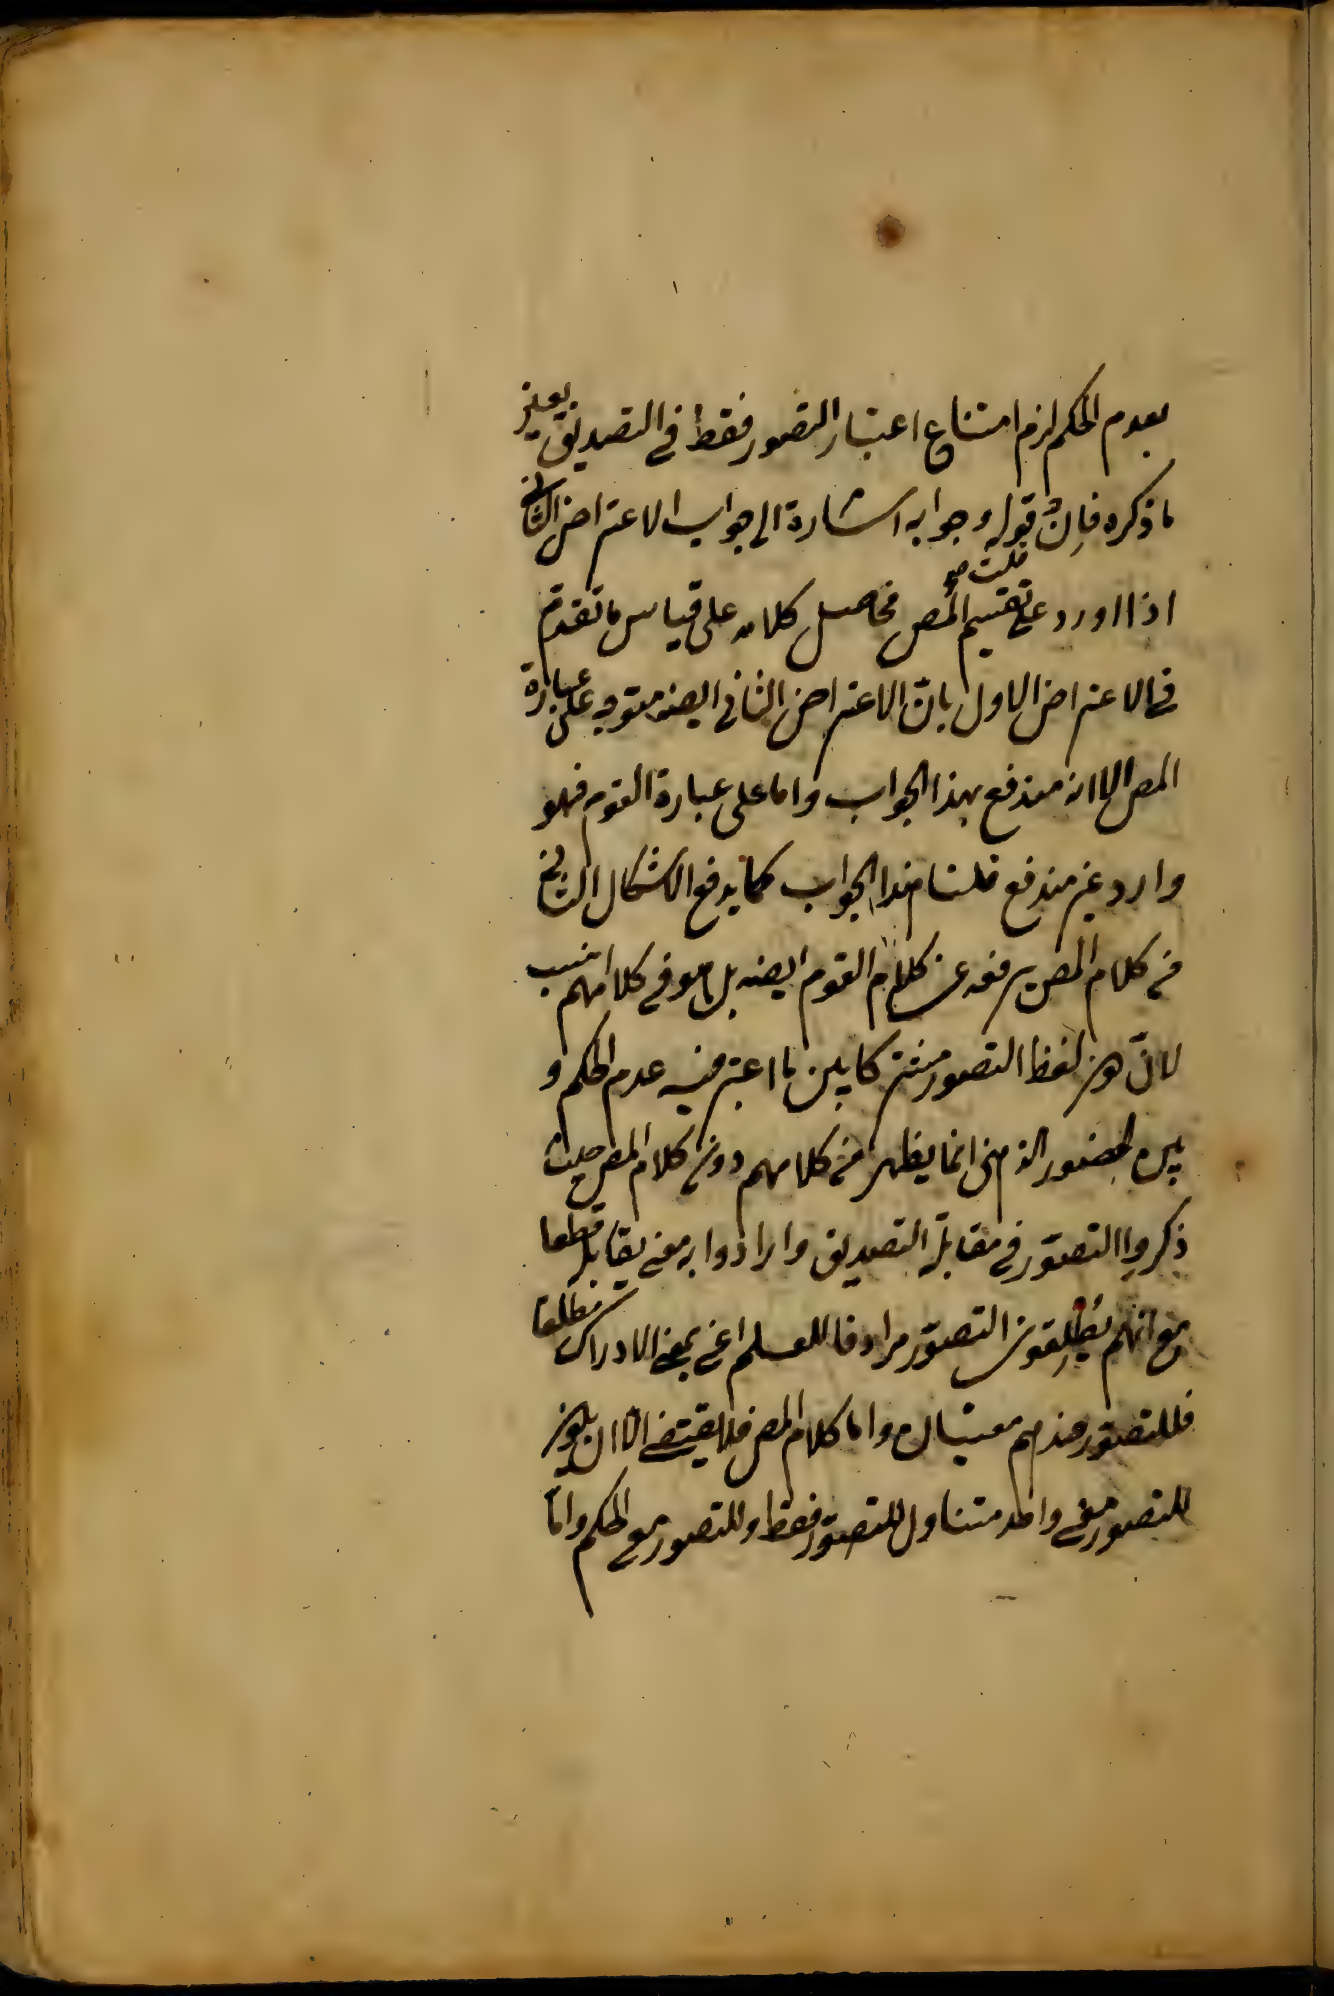 بعدم الحكم لزم امتناع اعتبار التصور فقط في التصديق بعين
ما ذكره فإن قوله وجوابه اشارة الى جواب الاعتراض الثاني
قلت صح
اذا اورد على تقسيم المص فحاصل كلامه على قياس ما تقدم
في الاعتراض الاول بان الاعتراض الثاني ايضه متوجه على عبارة
المص الا انه مندفع بهذا الجواب واما على عبارة القوم فهو
وارد غير مندفع قلنا هذا الجواب كما يدفع الاشكال الثاني
في كلام المص يرفعه عن كلام القوم ايضه بل هو في كلامهم انسب
لانّ كون لفظ التصور مشتركا بين ما اعتبر فيه عدم الحكم و
بين الحضور الذهنى انما يظهر في كلامهم دون كلام المص حيث
ذكروا التصوّر في مقابلة التصديق وارادوا به معنى يقابله قطعا
مع انهم يطلقون التصوّر مرادفا للعلم اعني بمعنى الادراك مطلقا
فللتصوّر عندهم معنيان واما كلام المص فلا يقتضي الا ان يكون
للتصور معنى واحد متناول للتصوّر فقط وللتصور مع الحكم وامّا